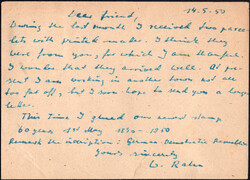 14.5.50
Dear friend,
During the last month I received two parce-
lets with printed matter. I think they
were from you, for which I am thankful
I wonder that they arrived well. At pre-
sent I am working in another town not all
too far off, but I soon hope to send you a longer
letter.
This time I glued our new stamp
60 years 1st May 1890-1950
Remark the inscription: German Democratic Republic
Yours sincerely
W.